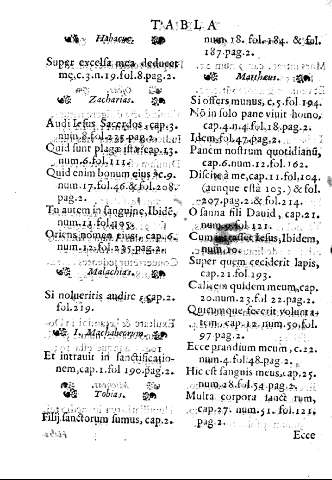 TABLA
Habacuc.
Super excelsa mea deducet
me, c. 3. n. 19. fol. 8. pag. 2.
Zacharias.
Audi Iesus Sacerdos, cap. 3.
num. 8. fol. 235. pag. 2.
Quid sunt plagæ istæ, c. 13.
num. 6. fol. 111.
Quid enim bonum eius, c. 9.
num. 17. fol. 46. & fol. 208.
pag. 2.
Tu autem in sanguine, Ibidē,
num. 11. fol. 105.
Oriens nomen eius, cap. 6.
num. 12. fol. 235. pag. 2.
Malachias.
Si nolueritis audire, cap. 2.
fol. 219.
1. Machabeorum.
Et intrauit in sanctificatio-
nem, cap. 1. fol 190. pag. 2.
Tobias.
Filij sanctorum sumus, cap. 2.
num. 18. fol. 184. & fol.
187. pag. 2.
Mattheus.
Si offers munus, c. 5. fol 194.
Nō in solo pane viuit homo,
cap. 4. n. 4. fol. 18. pag. 2.
Idem fol. 47. pag. 2.
Panem nostrum quotidianū,
cap. 6. num. 12. fol. 162.
Discite à me, cap. 11. fol. 104.
(aunque està 103.) & fol.
207. pag. 2. & fol. 214.
O sanna fili Dauid, cap. 21.
num. 9. fol. 121.
Cum Iesus, Ibidem,
num. 10.
Super quem ceciderit lapis,
cap. 21. fol 193.
Calicem quidem meum, cap.
20. num. 23. fol 22. pag. 2.
Quicumque fecerit volunta-
tem, cap. 12. num. 50. fol.
97 pag. 2.
Ecce prandium meum, c. 22.
num. 4. fol. 48. pag. 2.
Hic est sanguis meus, cap. 25.
num. 28. fol. 54. pag. 2.
Multa corpora sanct rum,
cap. 27. num. 51. fol. 121.
pag. 2.
Ecce